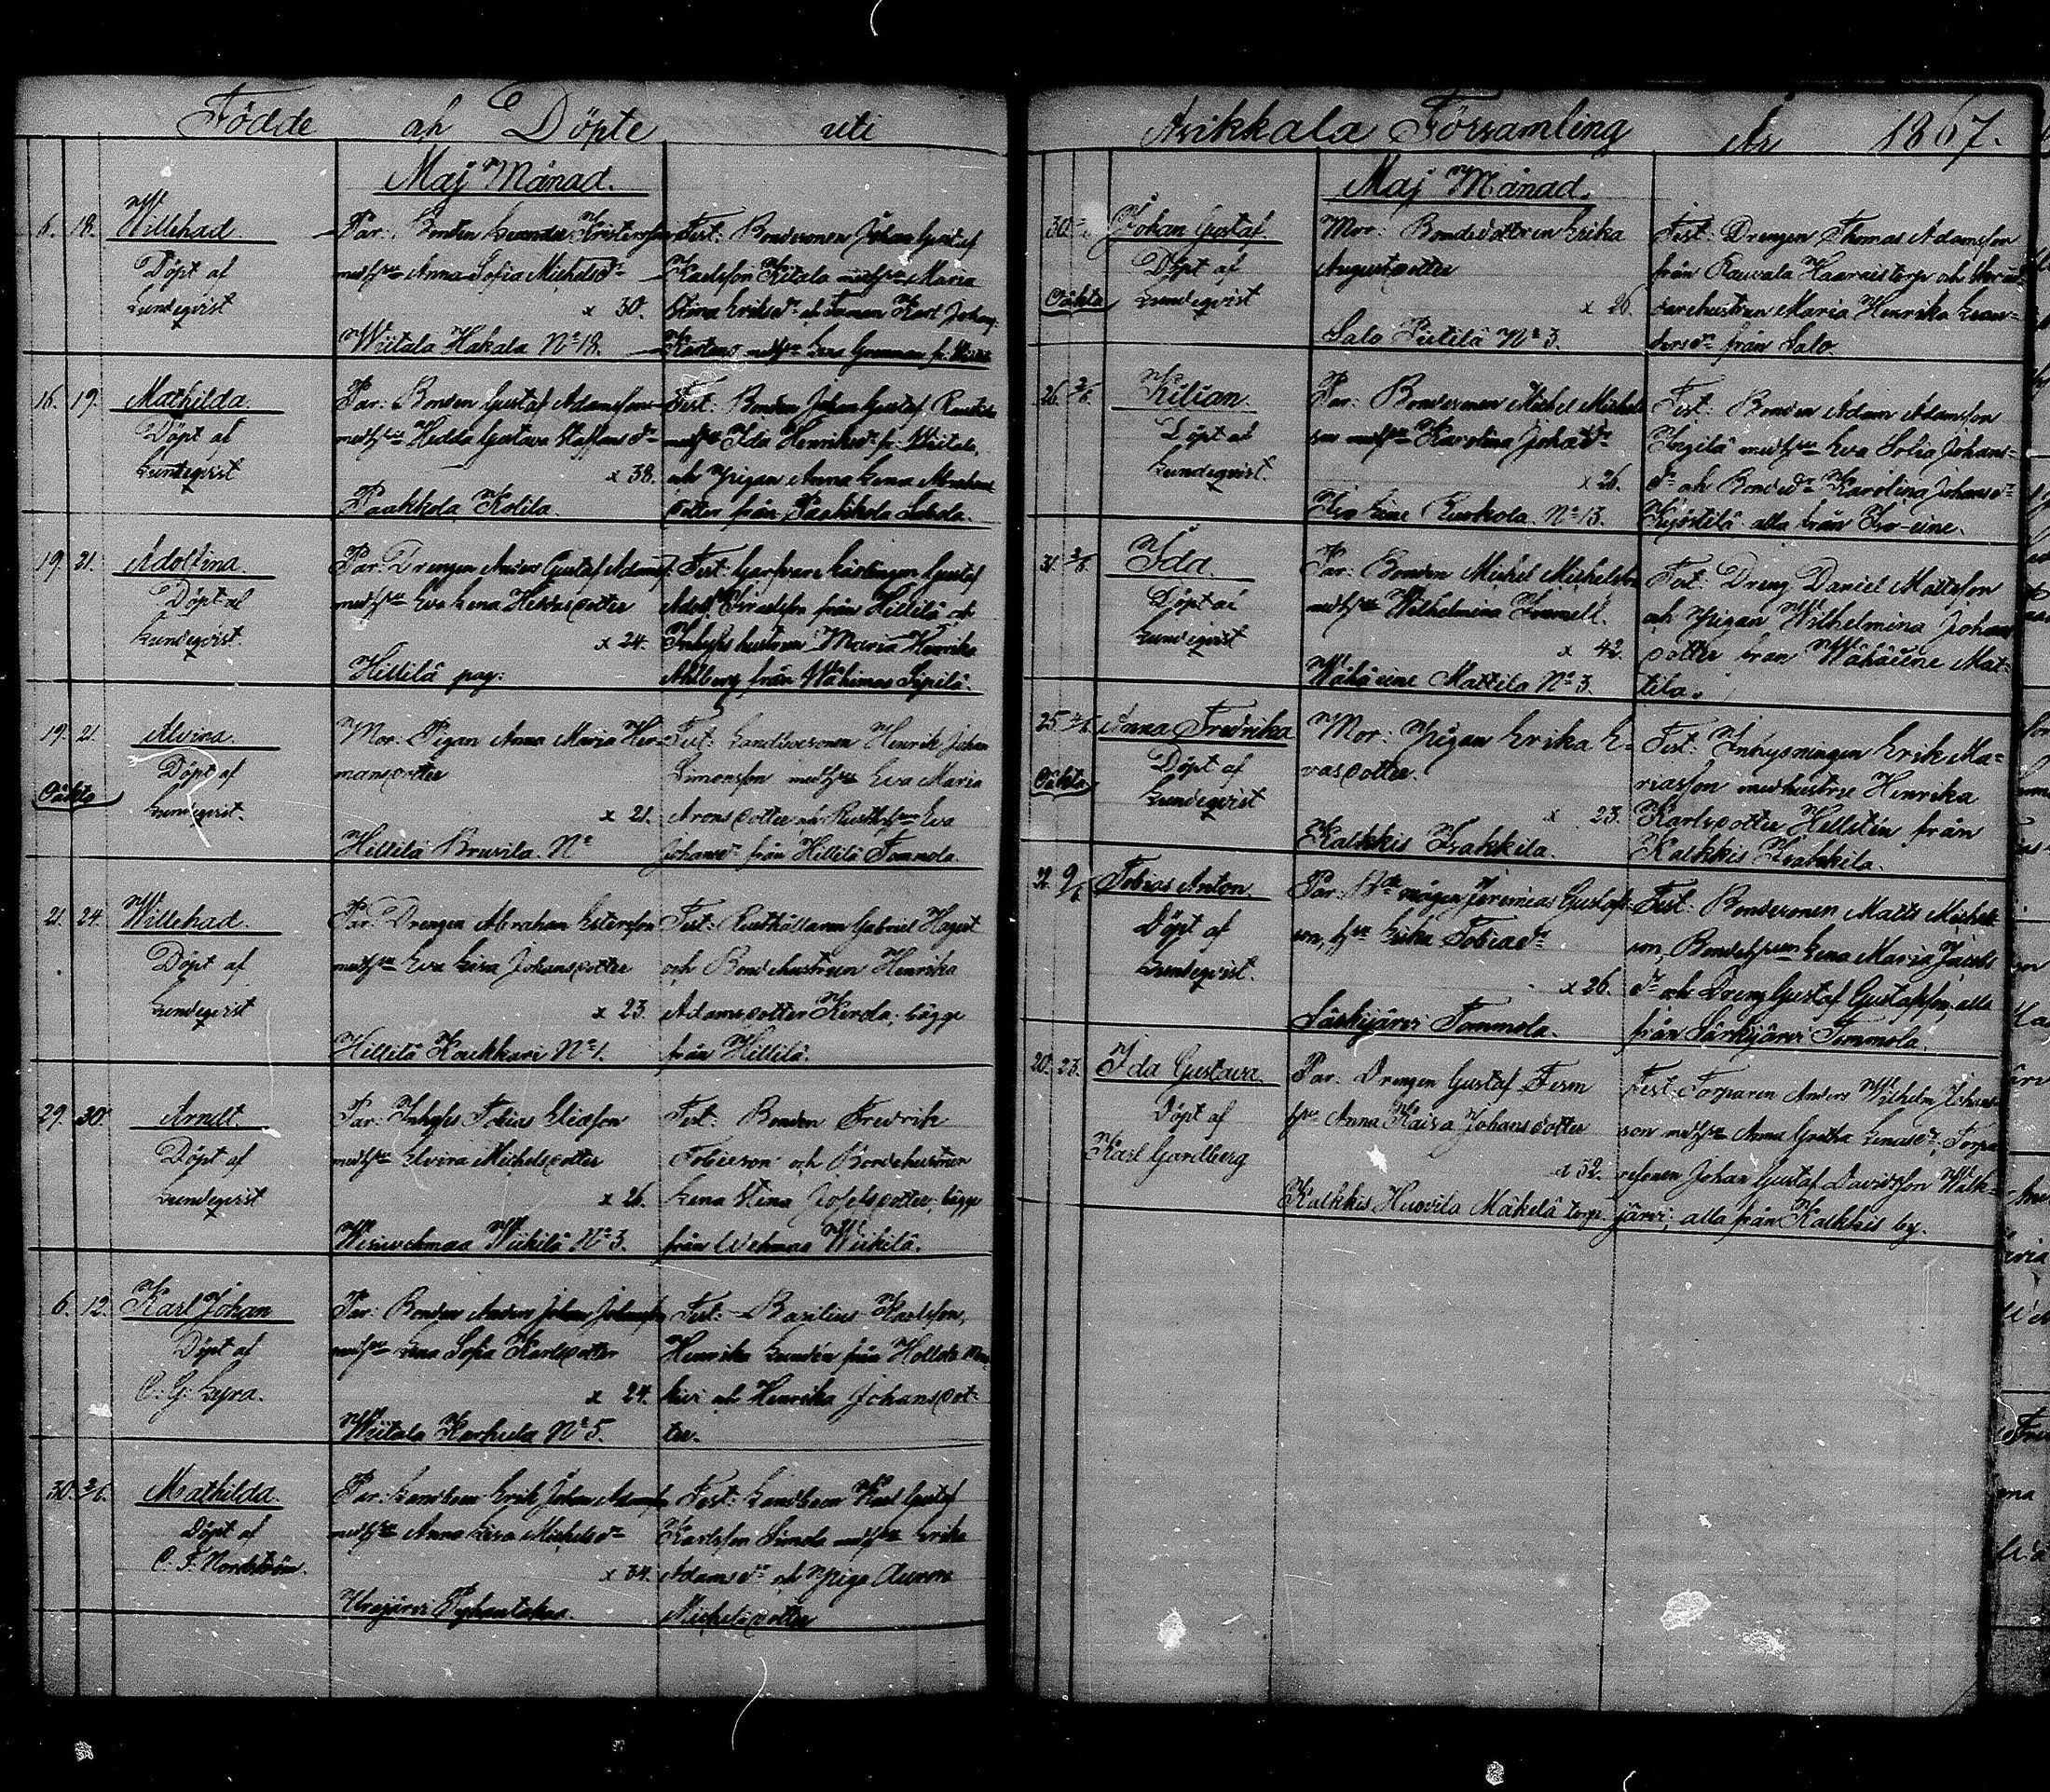 Födde och Döpte uti
Maj Månad.
6. 18. Willehad
Döpt af
Lundeqvist
Par: Bonden Leander Kristersson
medhust Anna Sofia Michelsdr
x 30.
Wiitala Hakala No 18.
Test: Bondesonen Johan Gustaf
Karlsson Kitala medhust Maria
Stina Eriksdr och Karl Johan
medhust Lena
16. 19. Mathilda.
Döpt af
Lundeqvist
Par: Bonden Gustaf Adamsson
medhust Hedda Gustava Staffansdr
x 38.
Paakkola Kolila
Test: Bonden Johan Gustaf
medhust Ida Henriksdr fr. Wiitala,
och Pigan Anna Lena Abrahams
dotter från Paakkola
19. 21. Adolfina.
Döpt af
Lundeqvist.
Par: Drengen Anders Gustaf Adamss.
medhust Eva Lena Heddasdotter
x 24.
Hillilä pag:
Test: Garfvare Lärlingen Gustaf
Adolf från Hillilä och
Inhyses hustrun Maria Henrika
Ahlberg från Wähimas Sipilä.
19. 21. Alvina.
Döpt af
Lundeqvist.
Oäkta
Mor: Pigan Anna Maria Her-
mansdotter
x 21.
Hillilä Brusila. No
Test: Landbosonen Henrik Johan
Simonsson medhust Eva Maria
Aronsdotter och Eva
Johansdr från Hillilä Tommola.
21. 24. Willehad.
Döpt af
Lundeqvist
Par: Drengen Abraham Estersson
medhust Eva Lisa Johansdotter
x 23.
Hillilä Koukkari No 1.
Test: Rusthållaren Gabriel
och Bondehustrun Henrika
Adamsdotter Kerola, bägge
från Hillilä.
29. 30. Arndt.
Döpt af
Lundeqvist
Par: Inhyses Tobias Eliasson
medhust Elvira Michelsdotter
x 26.
Wesiwehmaa Wiikilä No 3.
Test: Bonden Fredrik
Tobiesson och Bondehustrun
Lena Stina Josefsdotter, bägge
från Wehmaa Wiikilä.
6. 12. Karl Johan
Döpt af
C. G. Lyra.
Par: Bonden Anders Johan Johansson
medhust Lena Sofia Karlsdotter
x 24.
Wiitala Karhula No 5.
Test: Basilius Karlsson,
Henrika Lundén från Hollola
och Henrika Johansdot-
ter.
30. 2/6. Mathilda.
Döpt af
C. F. Nordström.
Par: Landbon Erik Johan
medhust Anna Lisa Michelsdr
x 34.
Urajärvi
Test: Landbon Karl Gustaf
Karlsson Simola medhust Erika
Adamsdr och Piga Aurora
Michelsdotter
Asikkala Församling År 1867.
Maj Månad.
30. Johan Gustaf.
Döpt af
Lundeqvist
Oäkta
Mor: Bondedottren Erika
Augustsdotter
x 26.
Salo Pietilä No 3.
Test: Drengen Thomas Adamsson
från Kauvala Haaraistorp och
Maria Henrika Lean-
dersdr från Salo.
26. 2/6. Kilian.
Döpt af
Lundeqvist.
Par: Bondesonen Michel Michels
son medhust Karolina Johansdr
x 26.
Iso Eine Euskola. No 13.
Test: Bonden Adam Adamsson
Ingilä medhust Eva Sofia Johans-
dr och Bondedr Karolina Johansdr
Kyöstilä alla från Iso-eine.
31. 2/6. Ida.
Döpt af
Lundeqvist
Par: Bonden Michel Michelsson
medhust Wilhelmina
x 42.
Wähäeine Mattila No 3.
Test: Dreng Daniel Mattsson
och Pigan Wilhelmina Johans
dotter från Wähäeine Mat-
tila.
25. 2/6. Anna Fredrika
Döpt af
Lundeqvist
Oäkta
Mor: Pigan Erika E-
vasdotter.
x 23.
Kalkkis Krakkila.
Test: Inhysningen Erik Ma-
riasson med hustru Henrika
Karlsdotter Hellstén från
Kalkkis Krakkila.
9/6 Tobias Anton.
Döpt af
Lundeqvist.
Par: mågen Jeremias Gustafs-
son, hust Erika Tobiasdr
x 26.
Särkijärvi Tommola.
Test: Bondesonen Matts Michels
son, Bondehustrun Lena Maria Jacobs
dr och Dreng Gustaf Gustafsson alla
från Särkijärvi Tommola.
20. 23. Ida Gustava
Döpt af
Karl Gardberg
Par: Drengen Gustaf
hust Anna Kaisa Johansdotter
x 32.
Kalkkis Huovila Mäkelä torp.
Test: Torparen Anders Wilhelm Johans-
son medhust Anna Gretha Torpa-
resonen Johan Gustaf Davidsson Walk-
järvi, alla från Kalkkis by.